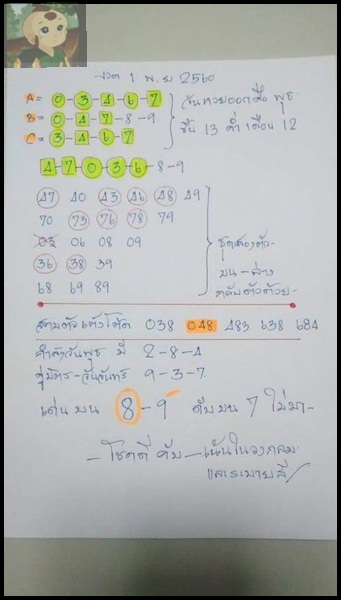 งวด 1 พ.ย 2560
A= 0-3-4-6-7
B= 0-4-7-8-9
C= 3-4-6-7
วันหวยออกคือ พุธ
ขึ้น 13 ค่ำ เดือน 12
4-7-0-3-6-8-9
47 40 43 46 48 49
70 73 76 78 79
03 06 08 09
36 38 39
68 69 89
ชุดสองตัว
บน-ล่าง
กลับตัวด้วย
สามตัวเต็งโต๊ด 038 048 483 638 684
กำลังวันพุธ มี 2-8-4
คู่มิตร-วันจันทร์ 9-3-7
เด่นบน 8-9 ดับบน 7 ไม่มา-
-โชคดีคับ-เน้นในวงกลม
และระบายสี